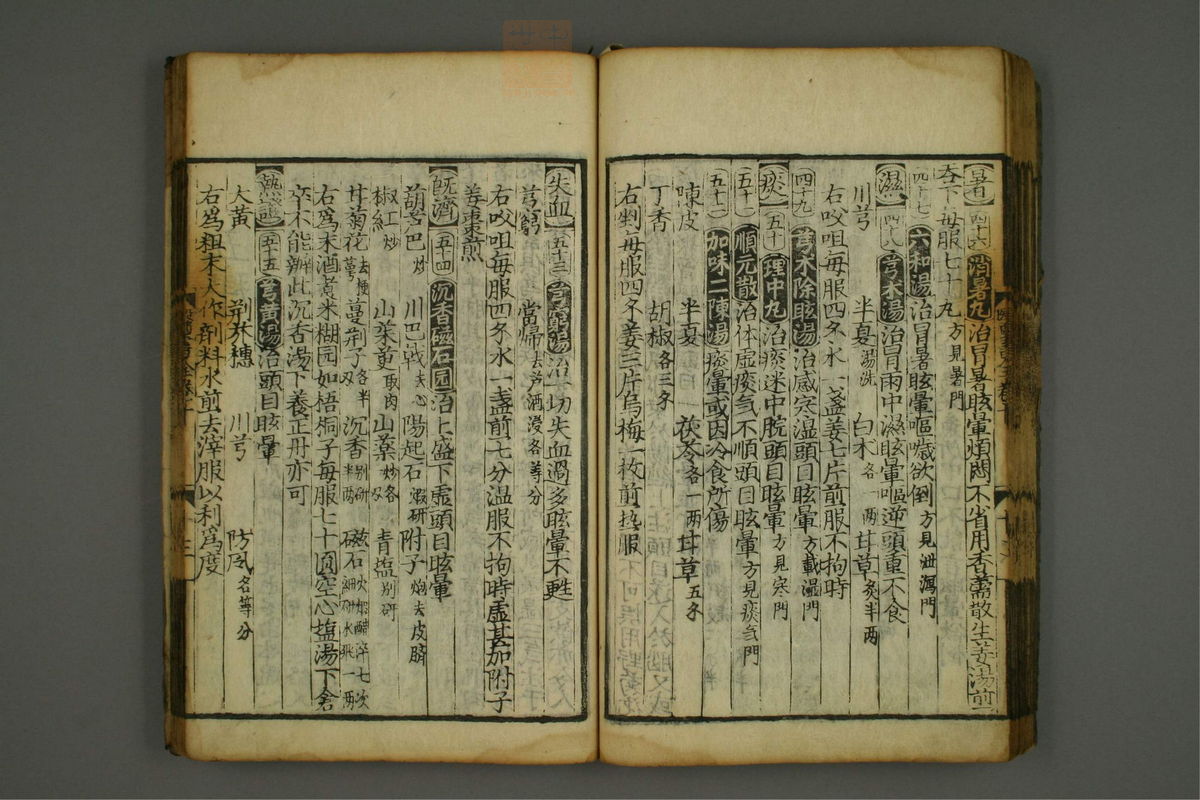 暑 四十六 消暑丸 治冒暑眩暈煩悶不省用香薷散生姜湯煎
吞下每服七十丸 方見暑門
四十七 六和湯 治冒暑眩暈嘔噦欲倒 方見泄瀉門
濕 四十八 芎朮湯 治冒雨中濕眩暈嘔逆頭重不食
川芎 半夏 湯洗 白朮 各一兩 甘草 炙半兩
右㕮咀每服四錢水一盞姜七片煎服不拘時
四十九 芎朮除眩湯 治感寒濕頭目眩暈 方載濕門
痰 五十 理中丸 治痰迷中脘頭目眩暈 方見寒門
五十一 順元散 治体虚痰氣不順頭目眩暈 方見痰氣門
五十二 加味二陳湯 痰暈或因冷食所傷
陳皮 半夏 茯苓 各一兩 甘草 五錢
丁香 胡椒 各三錢
右剉每服四錢姜三片烏梅一枚煎热服
失血 五十三 芎藭湯 治一切失血過多眩暈不甦
芎藭 當歸 去芦酒浸各等分
右㕮咀每服四錢水一盞煎七分温服不拘時虚甚加附子
姜棗煎
既濟 五十四 沉香磁石园 治上盛下虚頭目眩暈
葫芦巴 炒 川巴戟 去心 陽起石 煅研 附子 炮去皮臍
椒紅 炒 山茱萸 取肉 山藥 炒各 青塩 别研
甘菊花 去梗萼 蔓荆子 各半 沉香 别研半兩 磁石 火煅醋淬七次細研水飛一兩
右爲末酒煮米糊园如梧桐子每服七十圓空心塩湯下倉
卒不能辦此沉香湯下養正丹亦可
熱證 五十五 芎黄湯 治頭目眩暈
大黄 荆芥穗 川芎 防風 各等分
右爲粗末入作劑料水煎去滓服以利爲度